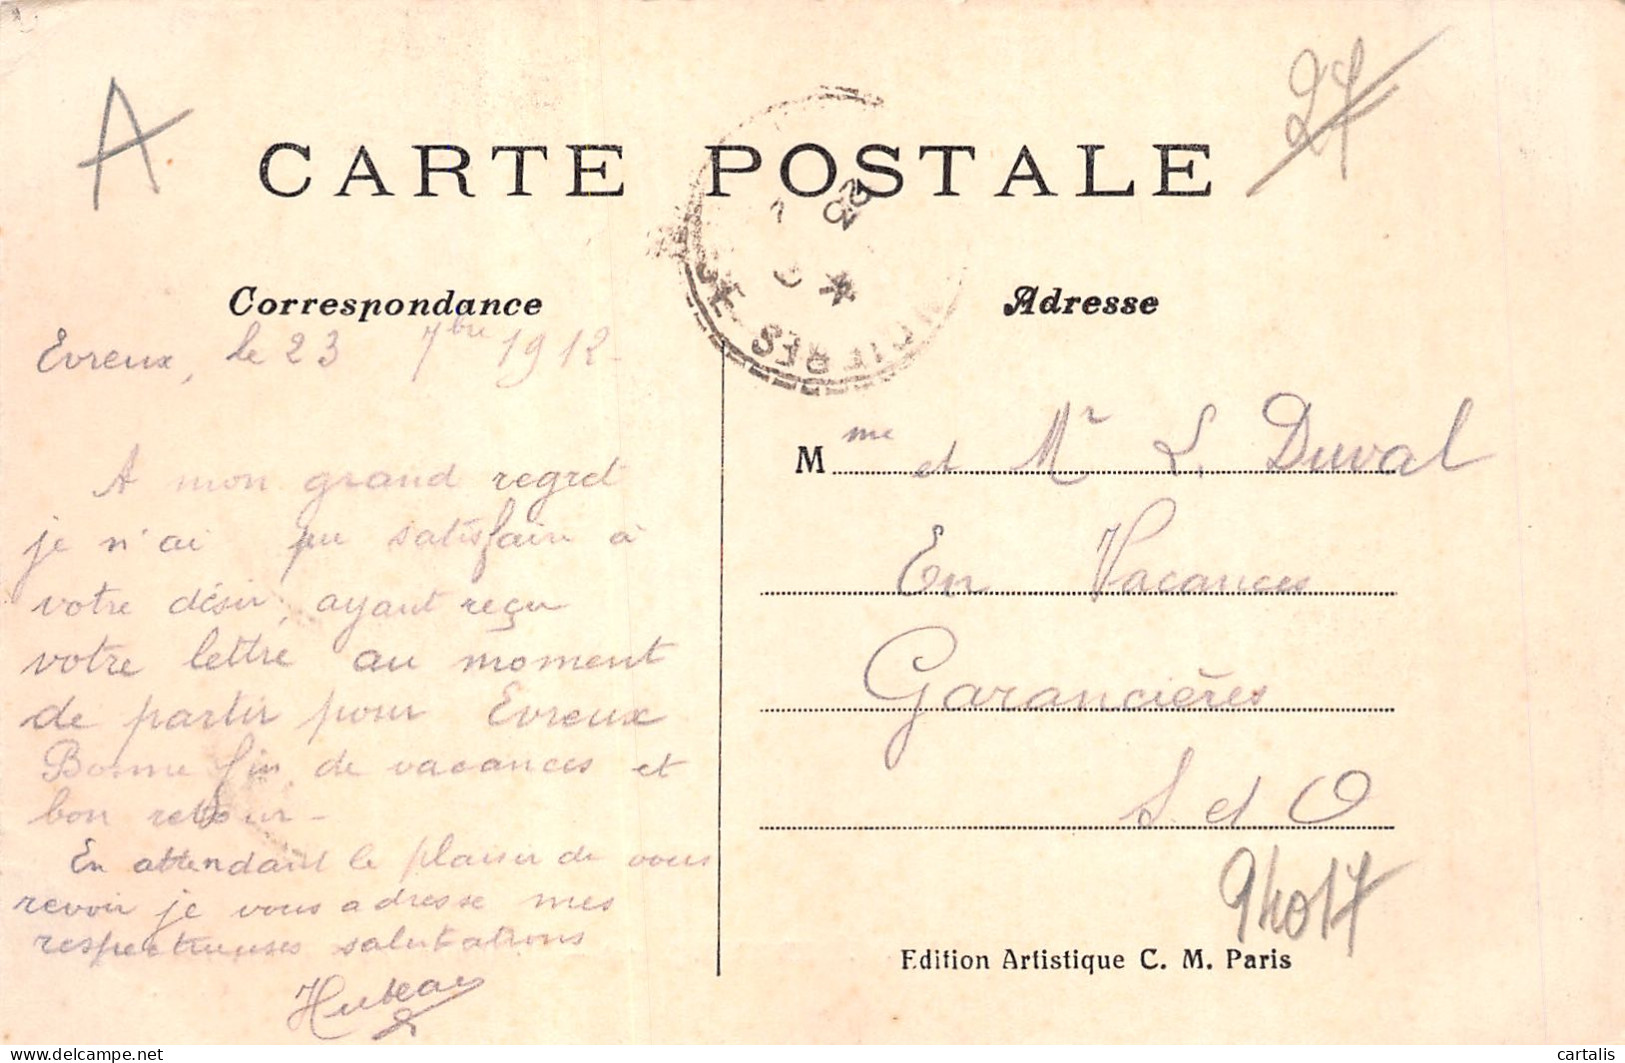 A
27
CARTE POSTALE
Correspondance
Evreux, le 23 7bre 1912-
A mon grand regret
je n'ai pu satisfaire à
votre désir, ayant reçu
votre lettre au moment
de partir pour Evreux
Bonne fin de vacances et
bon retour-
En attendant le plaisir de vous
revoir je vous adresse mes
respectueuses salutations
Adresse
Mme et Mr L. Duval
En Vacances
Garancières
S. et O
94017
Edition Artistique C. M. Paris
cartalis